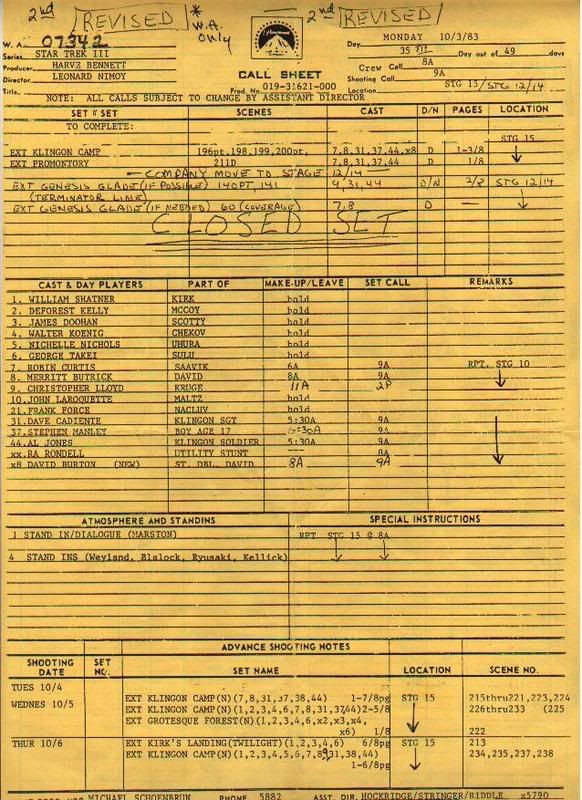 2nd REVISED * W.A. only 2nd REVISED
W. A. 07342
Series STAR TREK III
Producer HARVE BENNETT
Director LEONARD NIMOY
Title
Paramount
CALL SHEET
Prod. No. 019-31621-000
MONDAY 10/3/83
Day 35 Day out of 49 days
Crew Call 8A
Shooting Call 9A
Location STG 15/STG 12/14
NOTE: ALL CALLS SUBJECT TO CHANGE BY ASSISTANT DIRECTOR
SET # SET SCENES CAST D/N PAGES LOCATION
TO COMPLETE:
STG 15
EXT KLINGON CAMP 196pt,198,199,200pt, 7,8,31,37,44,x8 D 1-3/8
EXT PROMONTORY 211D 7,8,31,37,44 D 1/8
— COMPANY MOVE TO STAGE 12/14 —
EXT GENESIS GLADE (IF POSSIBLE) 140PT, 141 9,31,44 D/N 2/8 STG 12/14
(TERMINATOR LINE)
EXT GENESIS GLADE (IF NEEDED) 60 (COVERAGE) 7,8 D —
CLOSED SET
CAST & DAY PLAYERS PART OF MAKE-UP/LEAVE SET CALL REMARKS
1. WILLIAM SHATNER KIRK hold
2. DEFOREST KELLY MCCOY hold
3. JAMES DOOHAN SCOTTY hold
4. WALTER KOENIG CHEKOV hold
5. NICHELLE NICHOLS UHURA hold
6. GEORGE TAKEI SULU hold
7. ROBIN CURTIS SAAVIK 6A 9A RPT. STG 10
8. MERRITT BUTRICK DAVID 8A 9A
9. CHRISTOPHER LLOYD KRUGE 11A 2P
10. JOHN LAROQUETTE MALTZ hold
21. FRANK FORCE NACLUV hold
31. DAVE CADIENTE KLINGON SGT 5:30A 9A
37. STEPHEN MANLEY BOY AGE 17 5:30A 9A
44. AL JONES KLINGON SOLDIER 5:30A 9A
xx. RA RONDELL UTILITY STUNT --- 8A
x8 DAVID BURTON (NEW) ST. DBL. DAVID 8A 9A
ATMOSPHERE AND STANDINS SPECIAL INSTRUCTIONS
1 STAND IN/DIALOGUE (MARSTON) RPT STG 15 @ 8A
4 STAND INS (Weyland, Blalock, Ryusaki, Kellick)
ADVANCE SHOOTING NOTES
SHOOTING DATE SET NO. SET NAME LOCATION SCENE NO.
TUES 10/4
EXT KLINGON CAMP(N)(7,8,31,37,38,44) 1-7/8pg STG 15 215thru221,223,224
WEDNES 10/5 EXT KLINGON CAMP(N)(1,2,3,4,6,7,8,31,37,44)2-5/8 226thru233 (225
EXT GROTESQUE FOREST(N)(1,2,3,4,6,x2,x3,x4,
x6) 1/8 222
THUR 10/6 EXT KIRK'S LANDING(TWILIGHT)(1,2,3,4,6) 6/8pg STG 15 213
EXT KLINGON CAMP(N)(1,2,3,4,5,6,7,8,9,31,38,44) 234,235,237,238
1-6/8pg
MICHAEL SCHOENBRUN PHONE 5882 ASST. DIR. HOCKRIDGE/STRINGER/RIDDLE x5790